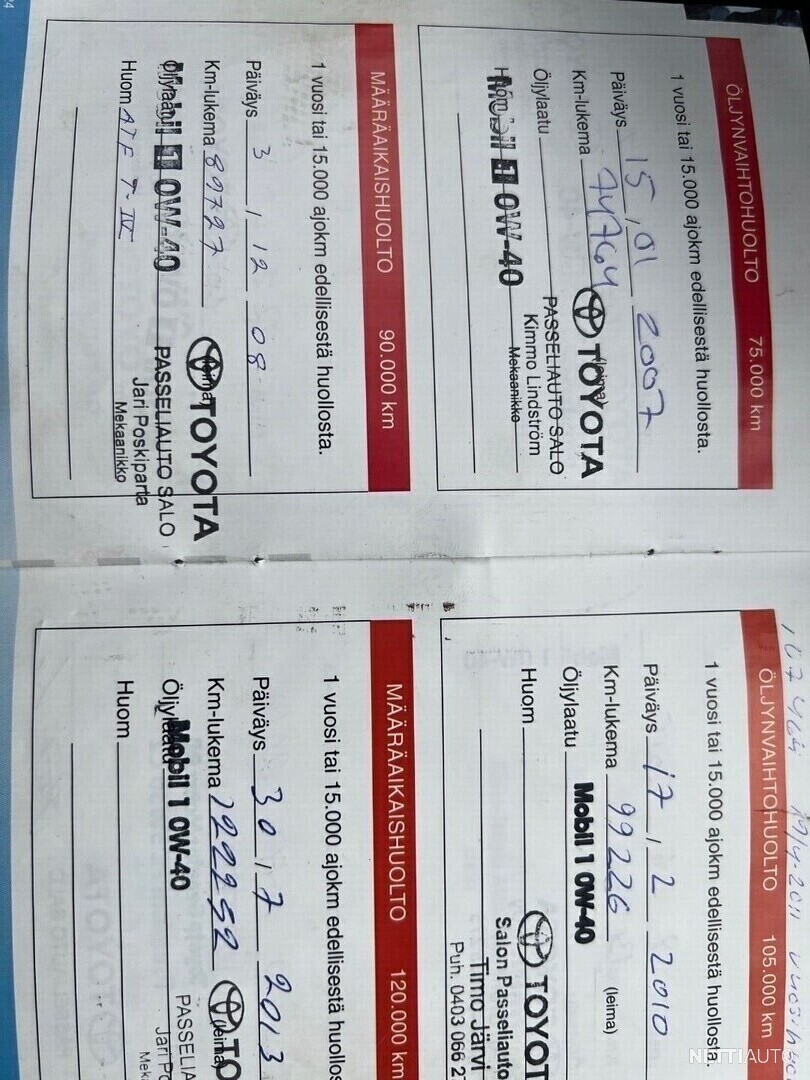 24
ÖLJYNVAIHTOHUOLTO 75.000 km
1 vuosi tai 15.000 ajokm edellisestä huollosta.
Päiväys 15 , 01 2007
Km-lukema 74764 (leima)
TOYOTA
Öljylaatu
PASSELIAUTO SALO
Kimmo Lindström
Mekaanikko
Huom
Mobil 1 0W-40
MÄÄRÄAIKAISHUOLTO 90.000 km
1 vuosi tai 15.000 ajokm edellisestä huollosta.
Päiväys 3 / 12 08
Km-lukema 89727 (leima)
TOYOTA
Öljylaatu Mobil 1 0W-40
PASSELIAUTO SALO
Jari Poskiparta
Mekaanikko
Huom ATF T-IV
107464 19/4-2011
ÖLJYNVAIHTOHUOLTO 105.000 km
1 vuosi tai 15.000 ajokm edellisestä huollosta.
Päiväys 17 , 2 2010
Km-lukema 99226 (leima)
Öljylaatu Mobil 1 0W-40
TOYOT
Salon Passeliauto
Timo Järvi
Puh. 0403 066 2
Huom
MÄÄRÄAIKAISHUOLTO 120.000 km
1 vuosi tai 15.000 ajokm edellisestä huollos
Päiväys 30 / 7 2013
Km-lukema 122252 (leima)
TO
Öljylaatu Mobil 1 0W-40
PASSELIA
Jari Po
Meka
Huom
NETTIAUTO